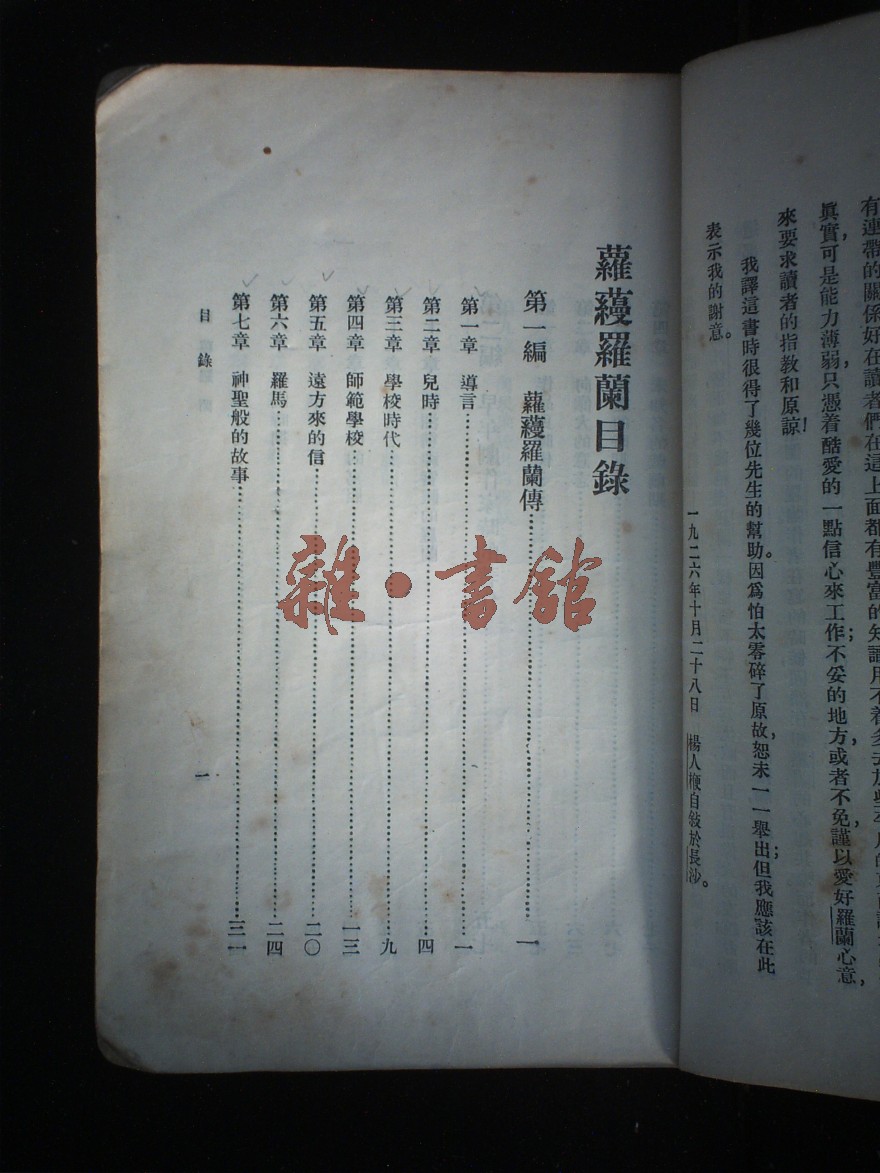 眞實可是能力薄弱,只憑着酷愛的一點信心來工作;不妥的地方,或者不免,謹以愛好羅蘭心意,
來要求讀者的指教和原諒!
我譯這書時,很得了幾位先生的幫助。因爲怕太零碎了原故,恕未一一舉出;但我應該在此
表示我的謝意。
一九二六年十月二十八日 楊人楩自敍於長沙。
蘿蔓羅蘭目錄
第一編 蘿蔓羅蘭傳……一
第一章 導言……一
第二章 兒時……四
第三章 學校時代……九
第四章 師範學校……一三
第五章 遠方來的信……二〇
第六章 羅馬……二四
第七章 神聖般的故事……三一
目錄
一
雜·書館